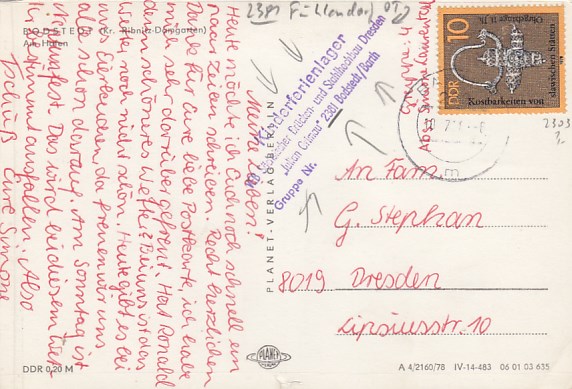 BODSTEDT (Kr. Ribnitz-Damgarten)
Am Hafen
Meine Lieben!
Heute möchte ich Euch noch schnell ein
paar Zeilen schreiben. Recht herzlichen
Dank für Eure liebe Postkarte, ich habe
mich sehr darüber gefreut. Hat Ronald
denn schönes Wetter? Bei uns ist das
Wetter noch nicht schön. Heute gibt es bei
uns Eierkuchen, da freuen wir uns
alle schon darauf. Am Sonntag ist
Neptunfest. Das wird bei diesem Wetter
bestimmt ausfallen. Also
Tschüß Eure Simone
DDR 0,20 M
PLANET-VERLAG BERLIN
PLANET
Kinderferienlager
VEB Sächsischer Brücken- und Stahlhochbau Dresden
"Julian Grimau" 2381 Bodstedt/Barth
Gruppe Nr.
2381 Fuhlendorf
Abs.: Simone
10
DDR
Kostbarkeiten von
slawischen Stätten
2303
?
An Fam.
G. Stephan
8019 Dresden
Lipsiusstr. 10
A 4/2160/78 IV-14-483 06 01 03 635